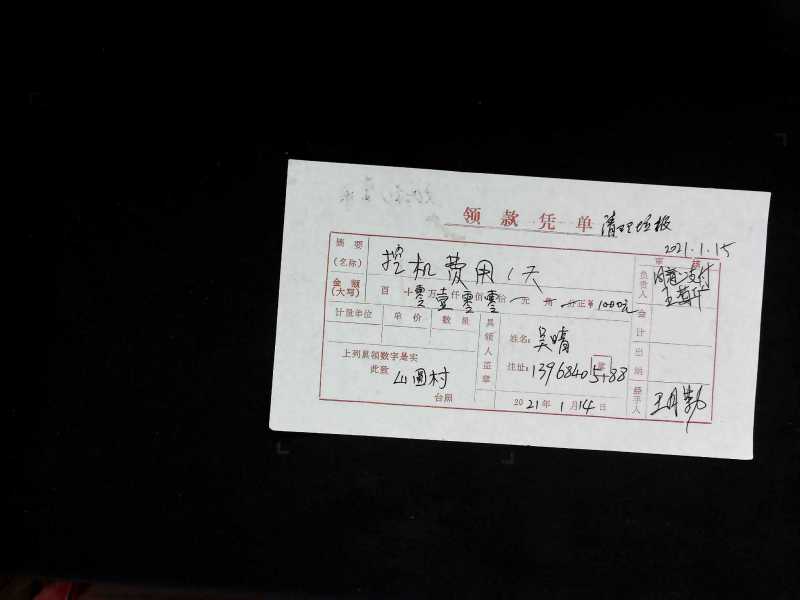 领款凭单
2021.1.15
摘要
(名称)
挖机费用1天
金额
(大写)
百十零万壹仟零佰零拾元角分正¥1000元
计量单位 单价 数量
上列具领数字是实
此致
山圆村
台照
具领人盖章
姓名：吴晴
住址：13968405188
章
2021年1月14日
审核
负责人
同意支付
会计
出纳
经手人